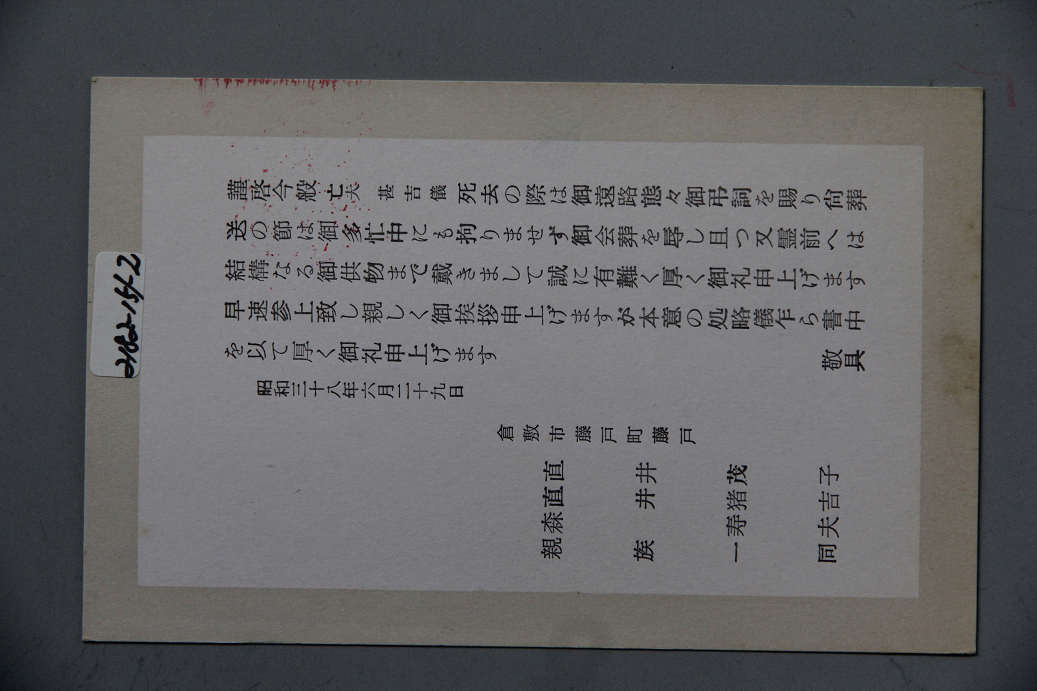 謹啓今般 亡夫 甚吉儀 死去の際は御遠路態々御弔詞を賜り尚葬
送の節は御多忙中にも拘りませず御会葬を辱し且つ又霊前へは
結構なる御供物まで戴きまして誠に有難く厚く御礼申上げます
早速参上致し親しく御挨拶申上げますが本意の処略儀乍ら書中
を以て厚く御礼申上げます
敬具
昭和三十八年六月二十九日
倉敷市藤戸町藤戸
直井茂子
直井猪吉
森寿夫
親族一同